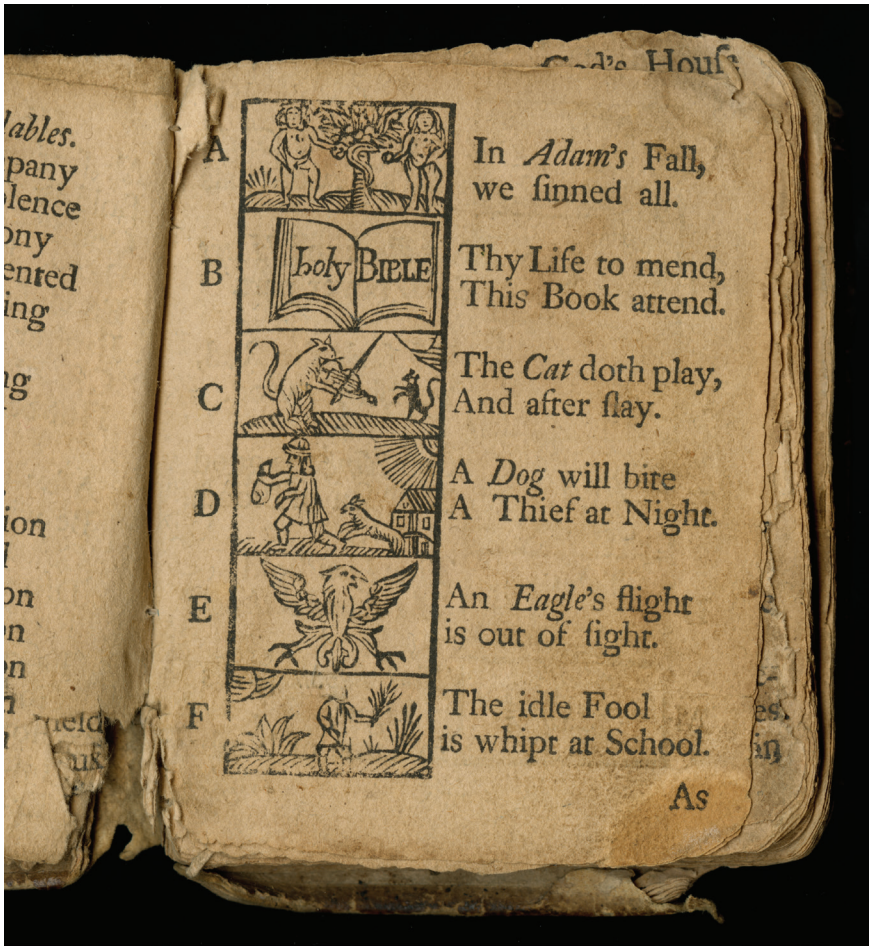 lables.
pany
lence
ony
ented
ing
ng
ion
on
n
on
n
God's Houſe
A
In Adam's Fall,
we ſinned all.
B
holy BIBLE
Thy Life to mend,
This Book attend.
C
The Cat doth play,
And after ſlay.
D
A Dog will bite
A Thief at Night.
E
An Eagle's flight
is out of ſight.
F
The idle Fool
is whipt at School.
As
es.
in